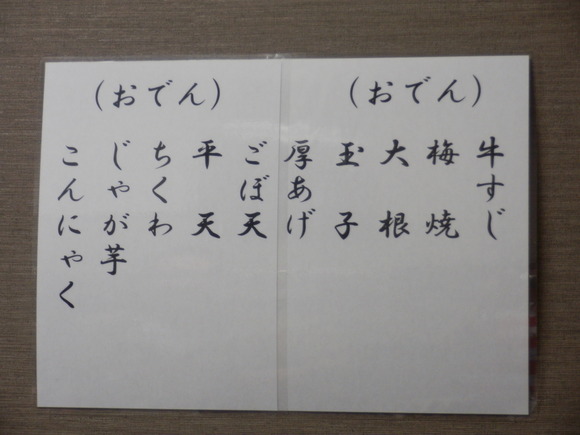 (おでん)
牛すじ
梅焼
大根
玉子
厚あげ
(おでん)
ごぼ天
平天
ちくわ
じゃが芋
こんにゃく